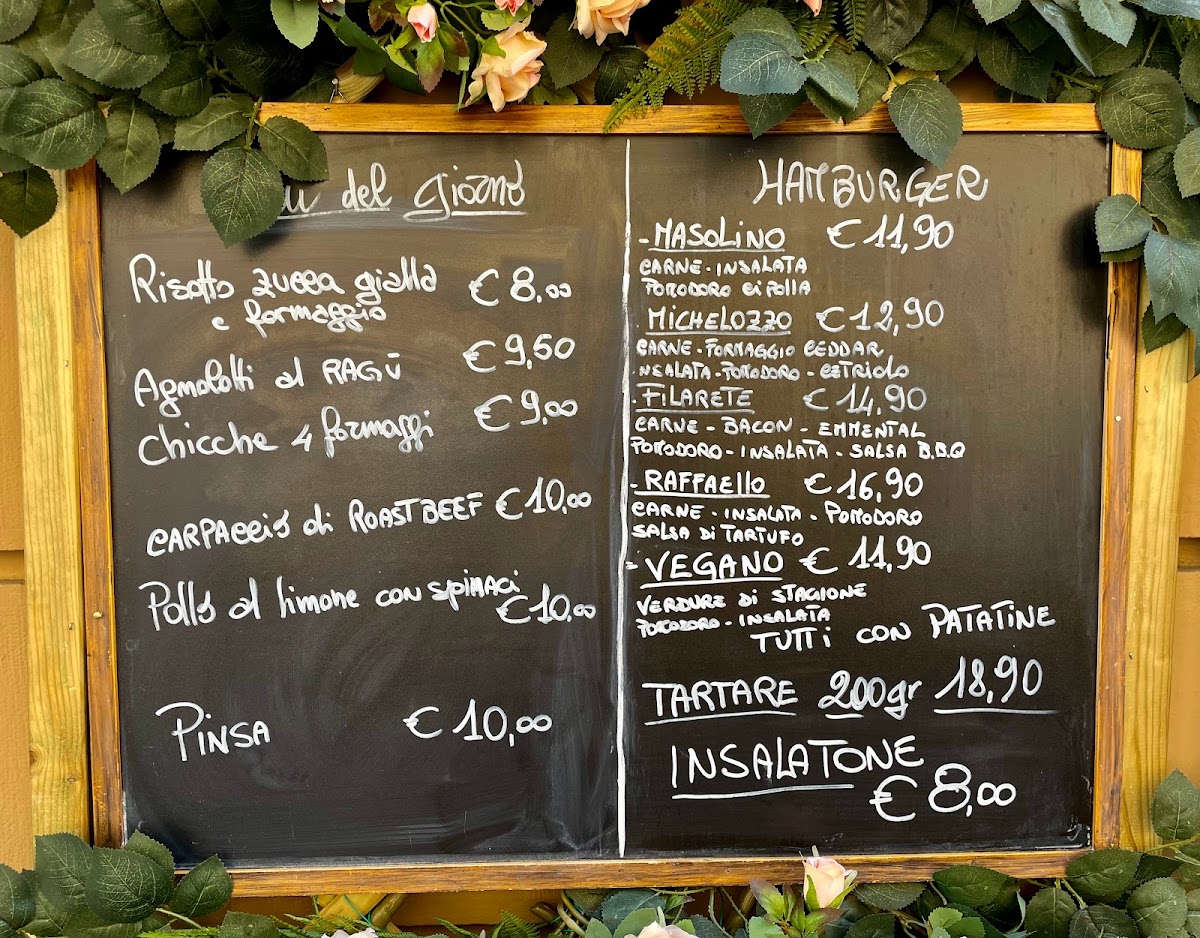 del Giorno
Risotto zucca gialla € 8,00
e formaggio
Agnolotti al RAGÙ € 9,50
Chicche 4 formaggi € 9,00
CARPACCIO di ROASTBEEF € 10,00
Pollo al limone con spinaci
€ 10,00
PINSA € 10,00
HAMBURGER
- MASOLINO € 11,90
CARNE - INSALATA
POMODORO CIPOLLA
- MICHELOZZO € 12,90
CARNE - FORMAGGIO CEDDAR
INSALATA - POMODORO - CETRIOLO
- FILARETE € 14,90
CARNE - BACON - EMMENTAL
POMODORO - INSALATA - SALSA B.B.Q
- RAFFAELLO € 16,90
CARNE - INSALATA - POMODORO
SALSA DI TARTUFO
- VEGANO € 11,90
VERDURE DI STAGIONE
POMODORO - INSALATA
TUTTI CON PATATINE
TARTARE 200gr 18,90
INSALATONE
€ 8,00